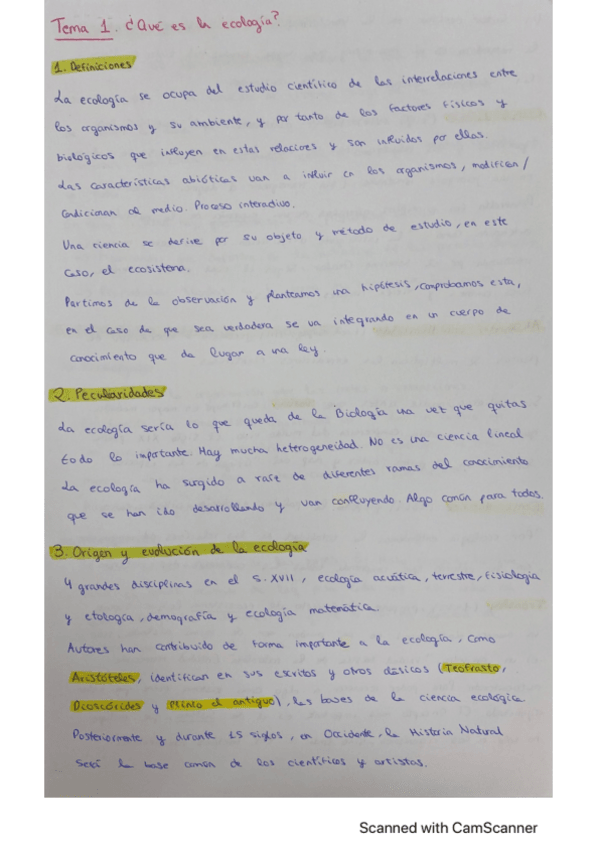 Tema 1. ¿Qué es la ecología?
1. Definiciones
La ecología se ocupa del estudio científico de las interrelaciones entre
los organismos y su ambiente, y por tanto de los factores físicos y
biológicos que influyen en estas relaciones y son influidos por ellas.
Las características abióticas van a influir en los organismos, modifican/
condicionan al medio. Proceso interactivo.
Una ciencia se derive por su objeto y método de estudio, en este
caso, el ecosistema.
Partimos de la observación y planteamos una hipótesis, comprobamos esta,
en el caso de que sea verdadera se va integrando en un cuerpo de
conocimiento que da lugar a una ley.
2. Peculiaridades
La ecología sería lo que queda de la Biología una vez que quitas
todo lo importante. Hay mucha heterogeneidad. No es una ciencia lineal
La ecología ha surgido a raíz de diferentes ramas del conocimiento
que se han ido desarrollando y van confluyendo. Algo común para todos.
3. Origen y evolución de la ecología
4 grandes disciplinas en el S. XVII, ecología acuática, terrestre, fisiología
y etología, demografía y ecología matemática.
Autores han contribuido de forma importante a la ecología, como
Aristóteles, identifican en sus escritos y otros clásicos (Teofrasto,
Dioscórides y Plinio el antiguo), las bases de la ciencia ecológica
Posteriormente y durante 15 siglos, en Occidente, la Historia Natural
será la base común de los científicos y artistas.
Scanned with CamScanner